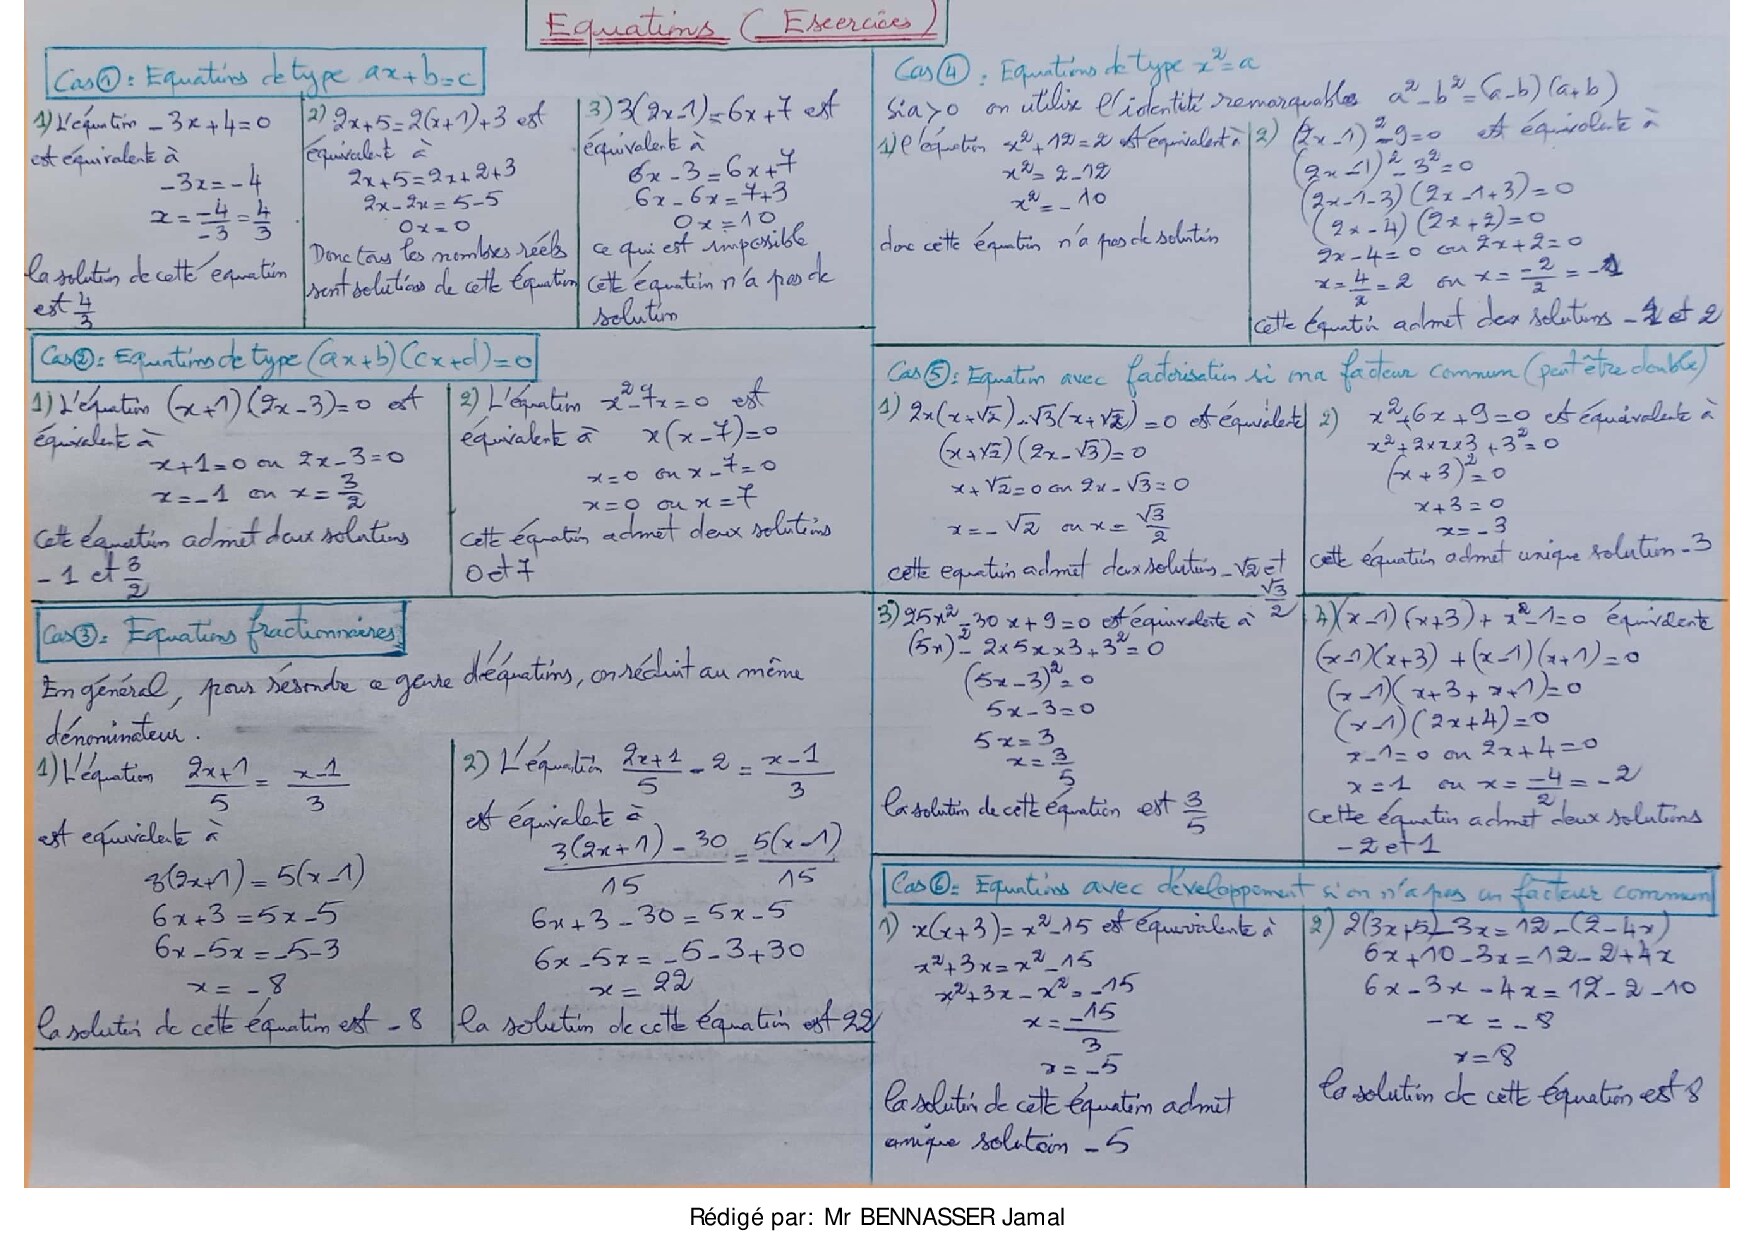 Equations ( Exercices )
Cas ① : Equations de type ax+b=c
1) L'équation -3x+4=0
est équivalente à
-3x=-4
x=\frac{-4}{-3}=\frac{4}{3}
la solution de cette équation
est \frac{4}{3}
2) 2x+5=2(x+1)+3 est
équivalent à
2x+5=2x+2+3
2x-2x=5-5
0x=0
Donc tous les nombres réels
sont solutions de cette équation
3) 3(2x-1)=6x+7 est
équivalente à
6x-3=6x+7
6x-6x=7+3
0x=10
ce qui est impossible
cette équation n'a pas de
solution
Cas ② : Equations de type (ax+b)(cx+d)=0
1) L'équation (x+1)(2x-3)=0 est
équivalente à
x+1=0 ou 2x-3=0
x=-1 ou x=\frac{3}{2}
cette équation admet deux solutions
-1 et \frac{3}{2}
2) L'équation x²-7x=0 est
équivalente à x(x-7)=0
x=0 ou x-7=0
x=0 ou x=7
cette équation admet deux solutions
0 et 7
Cas ③ : Equations fractionnaires
En général, pour résoudre ce genre d'équations, on réduit au même
dénominateur.
1) L'équation \frac{2x+1}{5}=\frac{x-1}{3}
est équivalente à
3(2x+1)=5(x-1)
6x+3=5x-5
6x-5x=-5-3
x=-8
la solution de cette équation est -8
2) L'équation \frac{2x+1}{5}-2=\frac{x-1}{3}
est équivalente à
\frac{3(2x+1)-30}{15}=\frac{5(x-1)}{15}
6x+3-30=5x-5
6x-5x=-5-3+30
x=22
la solution de cette équation est 22
Cas ④ : Equations de type x²=a
si a>0 on utilise l'identité remarquables a²-b²=(a-b)(a+b)
1) l'équation x²+12=2 est équivalent à
x²=2-12
x²=-10
donc cette équation n'a pas de solution
2) (2x-1)²-9=0 est équivalente à
(2x-1)²-3²=0
(2x-1-3)(2x-1+3)=0
(2x-4)(2x+2)=0
2x-4=0 ou 2x+2=0
x=\frac{4}{2}=2 ou x=\frac{-2}{2}=-1
cette équation admet deux solutions -1 et 2
Cas ⑤ : Equation avec factorisation si on a facteur commun (peut être double)
1) 2x(x+√2)-√3(x+√2)=0 est équivalente
(x+√2)(2x-√3)=0
x+√2=0 ou 2x-√3=0
x=-√2 ou x=\frac{√3}{2}
cette equation admet deux solutions -√2 et
\frac{√3}{2}
2) x²+6x+9=0 est équivalente à
x²+2×x×3+3²=0
(x+3)²=0
x+3=0
x=-3
cette équation admet unique solution -3
3) 25x²-30x+9=0 est équivalente à
(5x)²-2×5x×3+3²=0
(5x-3)²=0
5x-3=0
5x=3
x=\frac{3}{5}
la solution de cette équation est \frac{3}{5}
4) (x-1)(x+3)+x²-1=0 équivalente
(x-1)(x+3)+(x-1)(x+1)=0
(x-1)(x+3+x+1)=0
(x-1)(2x+4)=0
x-1=0 ou 2x+4=0
x=1 ou x=\frac{-4}{2}=-2
cette équation admet deux solutions
-2 et 1
Cas ⑥ : Equations avec développement si on n'a pas un facteur commun
1) x(x+3)=x²-15 est équivalente à
x²+3x=x²-15
x²+3x-x²=-15
x=\frac{-15}{3}
x=-5
la solution de cette équation admet
unique solution -5
2) 2(3x+5)-3x=12-(2-4x)
6x+10-3x=12-2+4x
6x-3x-4x=12-2-10
-x=-8
x=8
la solution de cette équation est 8
Rédigé par: Mr BENNASSER Jamal